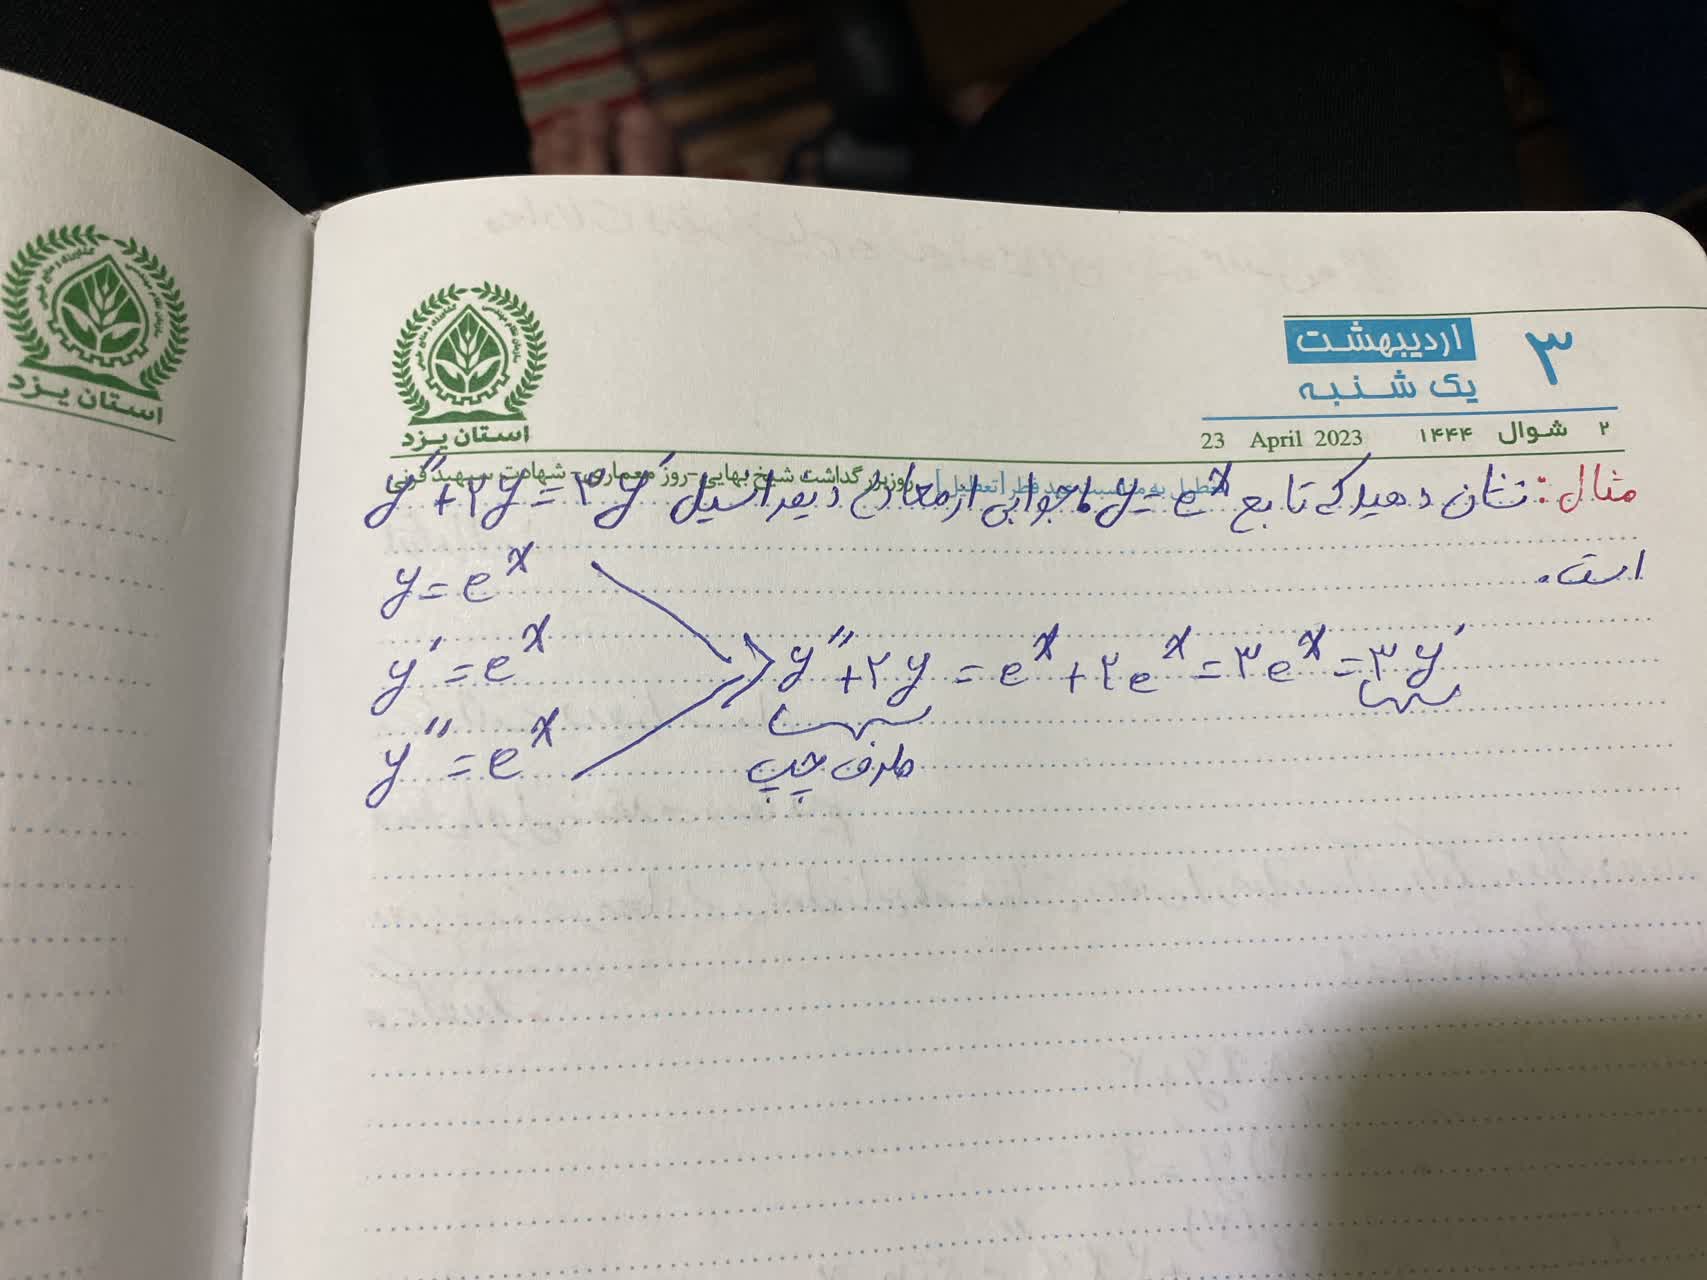 استان یزد
استان یزد
۳ اردیبهشت
یک شنبه
۲ شوال ۱۴۴۴ 23 April 2023
روز بزرگداشت شیخ بهایی-روز معماری- شهادت سپهبد قرنی
مثال: نشان دهید که تابع y = e^x جوابی از معادله دیفرانسیل y″+۲y=۳y′
است.
y = e^x
y′ = e^x
y″+۲y = e^x+۲e^x=۳e^x=۳y′
y″ = e^x
طرف چپ